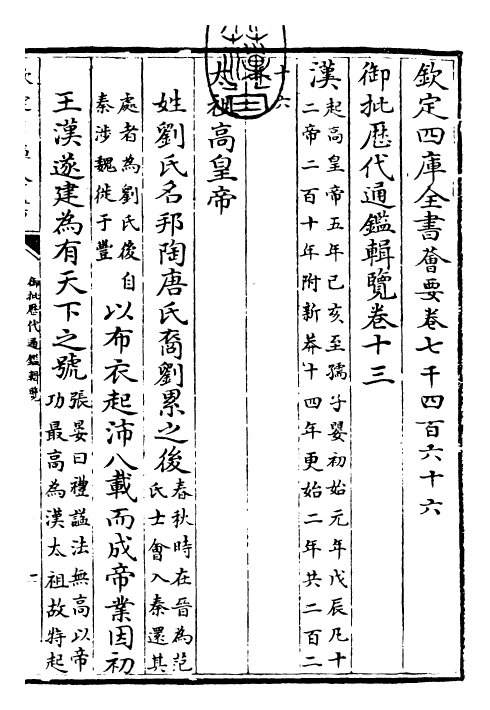 欽定四庫全書薈要卷七千四百六十六
御批歷代通鑑輯覽卷十三
漢
起高皇帝五年己亥至孺子嬰初始元年戊辰凡十
二帝二百十年附新莽十四年更始二年共二百二
十六
太祖高皇帝
姓劉氏名邦陶唐氏裔劉累之後
春秋時在晉為范
氏士會入秦還其
處者為劉氏後自
秦涉魏徙于豐
以布衣起沛八載而成帝業因初
王漢遂建為有天下之號
張晏曰禮謚法無高以帝
功最高為漢太祖故特起
御批歷代通鑑輯覽
一